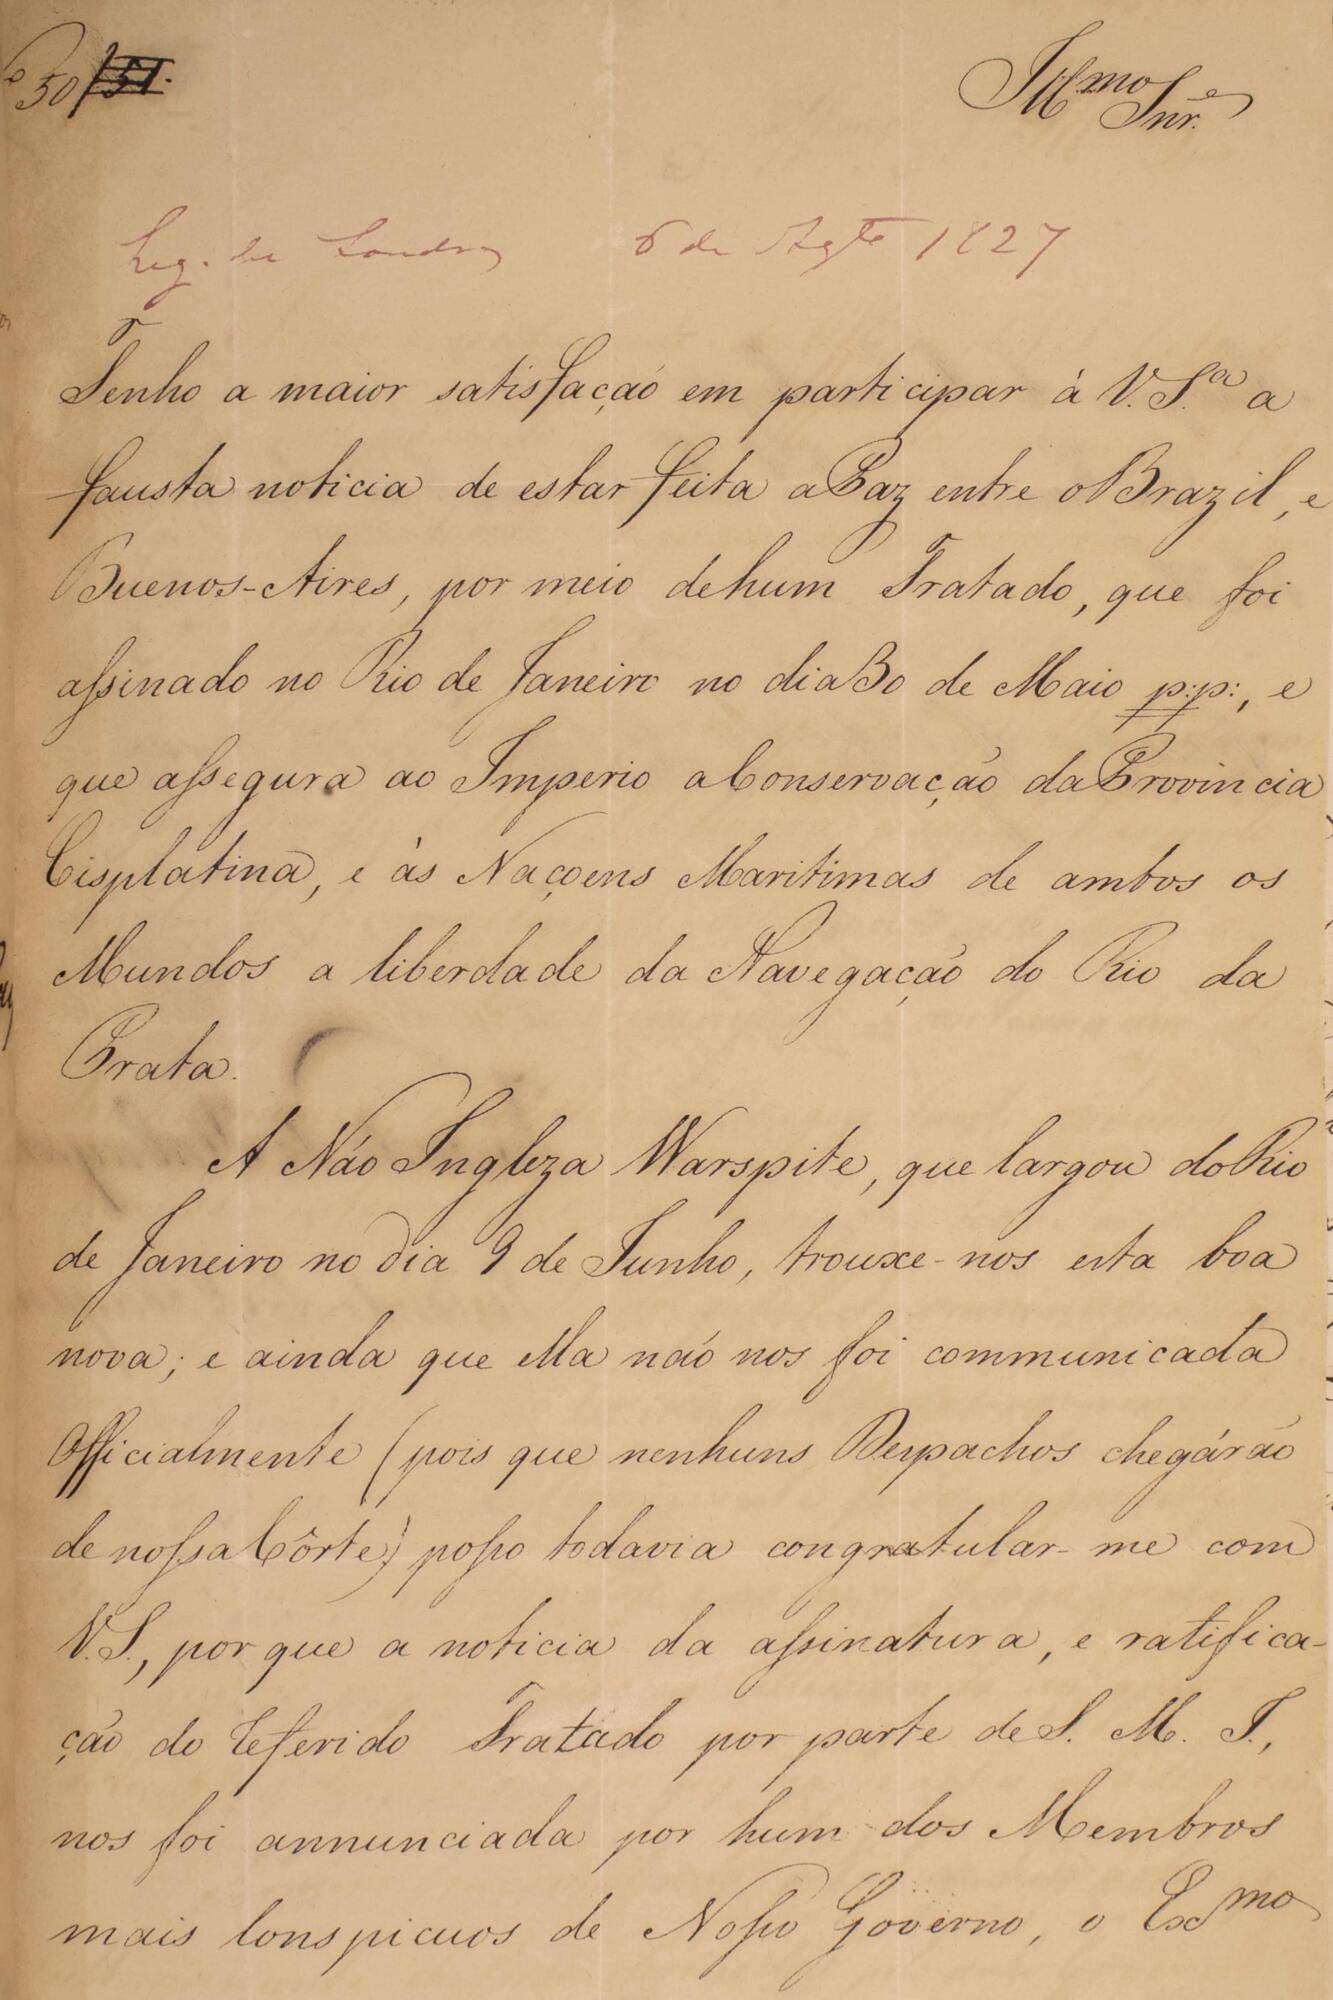 50/51.
Illmo Snr.
Leg. de Londres 6 de Agto 1827
Tenho a maior satisfação em participar à V. S.a a
fausta noticia de estar feita a Paz entre o Brazil, e
Buenos-Aires, por meio de hum Tratado, que foi
assinado no Rio de Janeiro no dia 30 de Maio p:p:, e
que assegura ao Imperio a Conservação da Provincia
Cisplatina, e às Naçoens Maritimas de ambos os
Mundos a liberdade da Navegação do Rio da
Prata.
A Náo Ingleza Warspite, que largou do Rio
de Janeiro no dia 9 de Junho, trouxe-nos esta boa
nova; e ainda que ella não nos foi communicada
Officialmente (pois que nenhuns Despachos chegárão
de nossa Côrte) posso todavia congratular-me com
V. S., por que a noticia da assinatura, e ratifica-
ção do referido Tratado por parte de S. M. I.,
nos foi annunciada por hum dos Membros
mais conspicuos de Nosso Governo, o Exmo